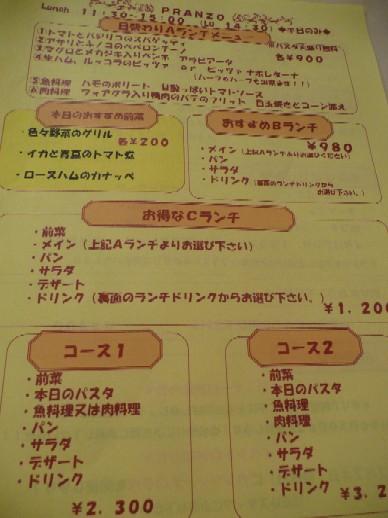 Lunch PRANZO
11:30-15:00 (LO 14:30) ◆平日のみ◆
日替わりAランチメニュー
1)トマトとバジリコのスパゲッティ
2)アサリとキノコのペペロンチーノ
各¥900
4)生ハム、ルッコラのピッツァ or ピッツァ ナポレターナ
(ハーフ&ハーフも出来ます!!)
5)魚料理 ハモのポリート 甘酸っぱいトマトソース
6)肉料理 フォアグラ入り鶏肉のパテのフリット 目玉焼きとコーン添え
本日のおすすめ前菜
各¥200
・色々野菜のグリル
・イカと青豆のトマト煮
・ロースハムのカナッペ
おすすめBランチ
¥980
・メイン(上記Aランチよりお選びください)
・パン
・サラダ
・ドリンク(裏面のランチドリンクから
お選び下さい。)
お得なCランチ
・前菜
・メイン(上記Aランチよりお選び下さい)
・パン
・サラダ
・デザート
・ドリンク(裏面のランチドリンクからお選び下さい。)
¥1.200
コース1
・前菜
・本日のパスタ
・魚料理又は肉料理
・パン
・サラダ
・デザート
・ドリンク
¥2.300
コース2
・前菜
・本日のパスタ
・魚料理
・肉料理
・パン
・サラダ
・デザート
・ドリンク
¥3.2